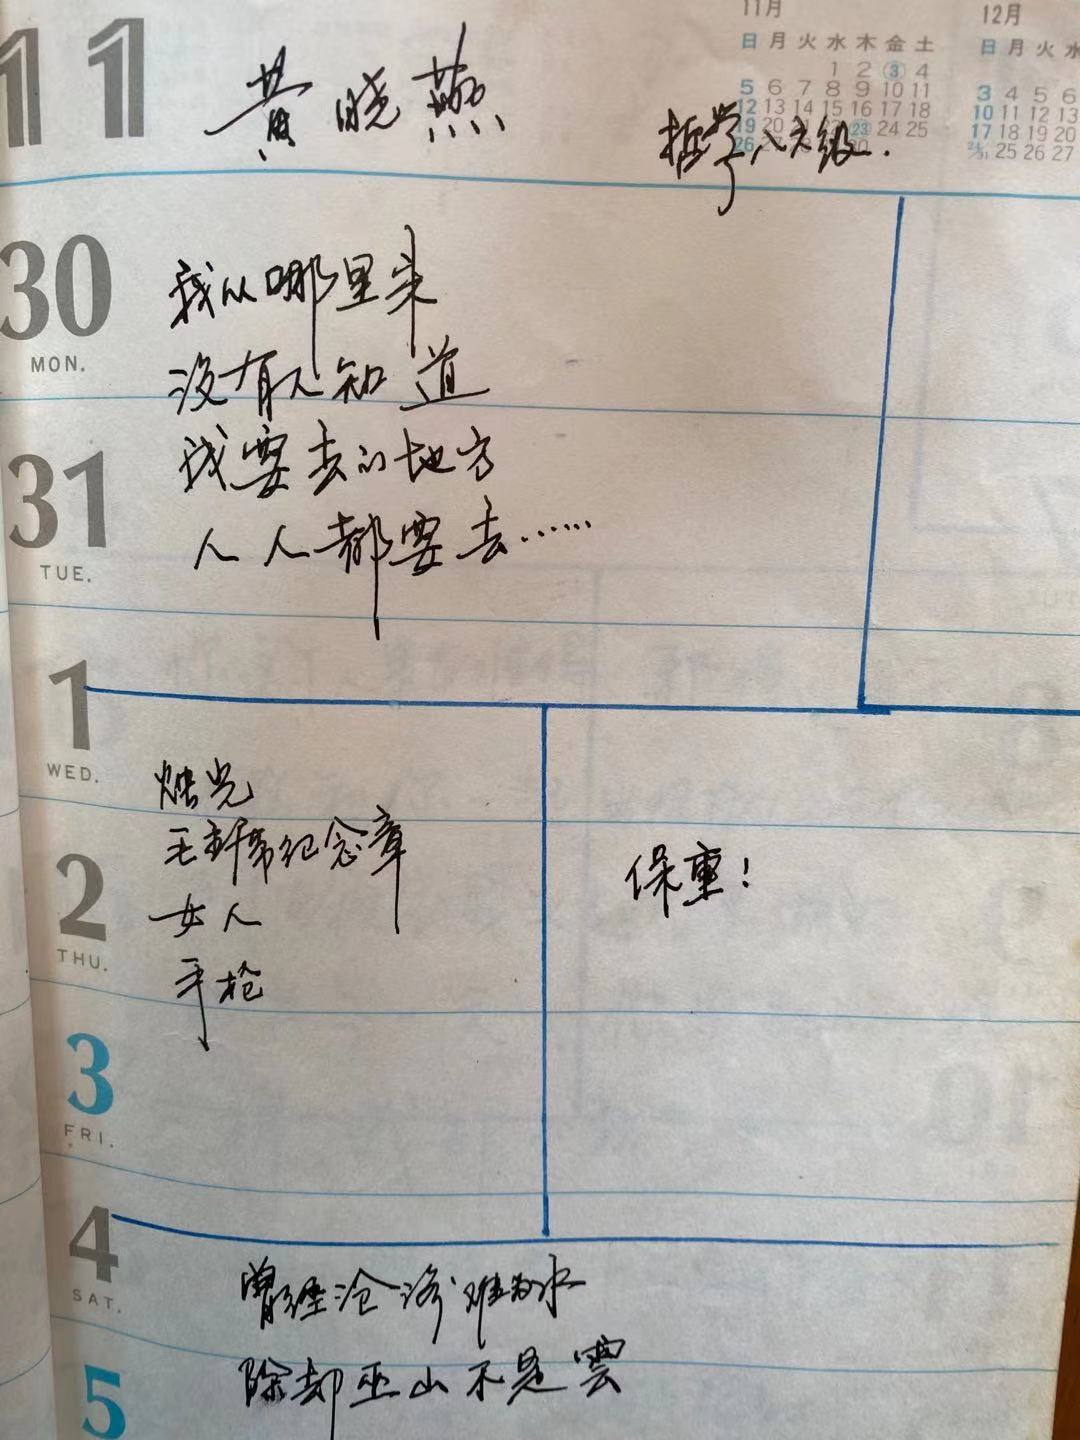 11
11月
日 月 火 水 木 金 土
1 2 3 4
5 6 7 8 9 10 11
12 13 14 15 16 17 18
19 20 23 24 25
26
12月
日 月 火 水
3 4 5 6
10 11 12 13
17 18 19 20
24/31 25 26 27
黄晓燕
哲学八六级.
30
MON.
我从哪里来
没有人知道
31
TUE.
我要去的地方
人人都要去……
1
WED.
烛光
毛主席纪念章
2
THU.
女人
手枪
保重!
3
FRI.
4
SAT.
曾经沧海难为水
5
除却巫山不是雲